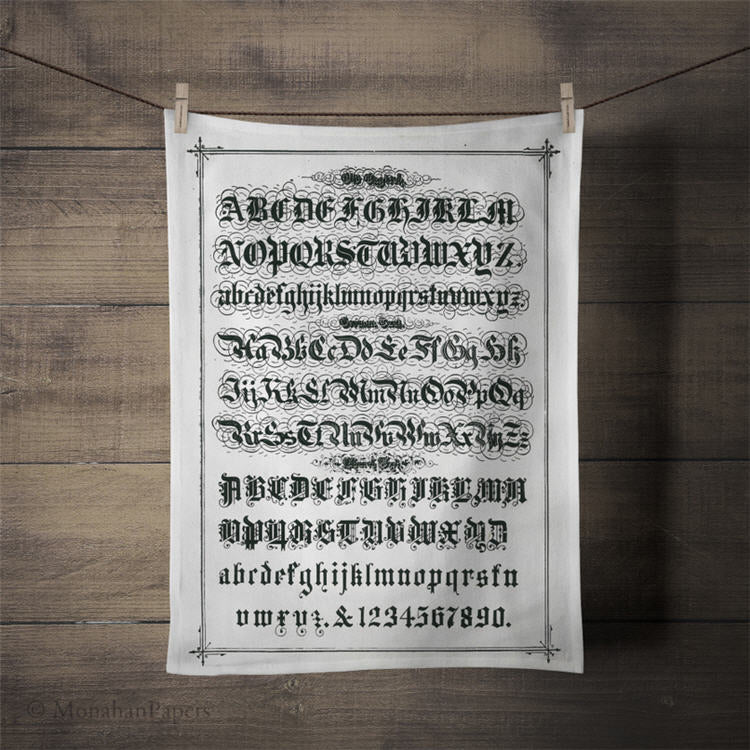 Old English.
ABCDEFGHIJKLM
NOPQRSTUVWXYZ.
abcdefghijklmnopqrstuvwxyz.
German Text.
AaBbCcDdEeFfGgHh
IijKkLlMmNnOoPpQq
RrSsTtUuVvWwXxYyZz
Church Text.
ABCDEFGHIJKLMN
OPQRSTUVWXYZ
abcdefghijklmnopqrstu
vwxyz.&1234567890.
© MonahanPapers